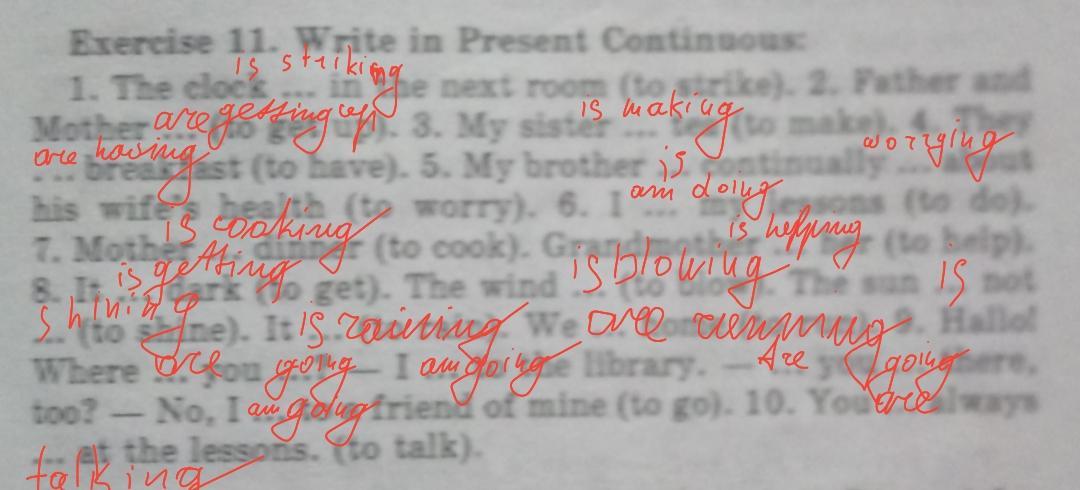 Exercise 11. Write in Present Continuous:
is striking
1. The clock ... in the next room (to strike). 2. Father and
are getting up is making
Mother ... (to get up). 3. My sister ... tea (to make). 4. They
are having worrying
... breakfast (to have). 5. My brother is continually ... about
am doing
his wife's health (to worry). 6. I ... my lessons (to do).
is cooking is helping
7. Mother ... dinner (to cook). Grandmother ... her (to help).
is getting is blowing is
8. It ... dark (to get). The wind ... (to blow). The sun ... not
shining is raining are running
... (to shine). It We Hallo!
are going am going Are going
Where ... you ... — I ... the library. — you there,
am going are
too? — No, I friend of mine (to go). 10. You always
... at the lessons. (to talk).
talking